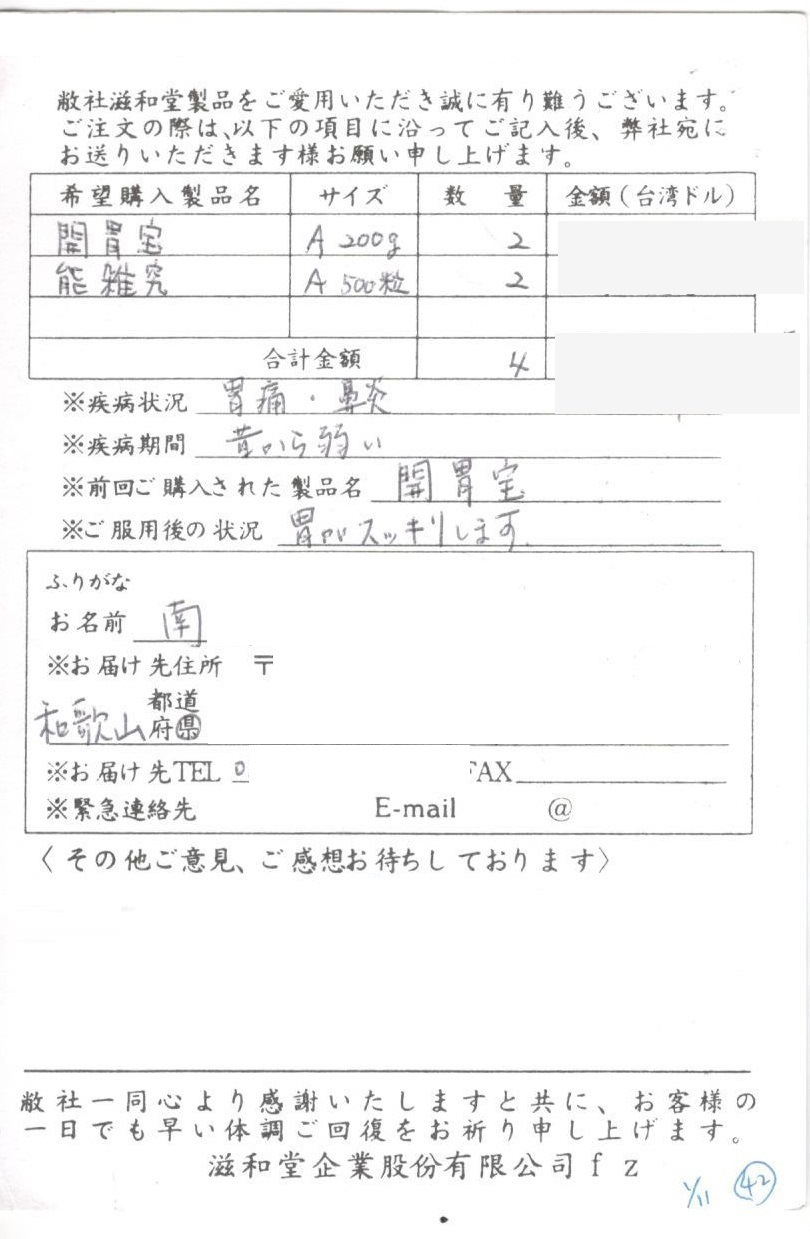 敝社滋和堂製品をご愛用いただき誠に有り難うございます。
ご注文の際は、以下の項目に沿ってご記入後、弊社宛に
お送りいただきます様お願い申し上げます。
希望購入製品名 サイズ 数量 金額(台湾ドル)
開胃宝 A 200g 2
能雑究 A 500粒 2
合計金額 4
※疾病状況 胃痛・鼻炎
※疾病期間 昔から弱い
※前回ご購入された製品名 開胃宝
※ご服用後の状況 胃がスッキリします。
ふりがな
お名前 南
※お届け先住所 〒
和歌山 都道府県
※お届け先TEL 0 FAX
※緊急連絡先 E-mail @
〈その他ご意見、ご感想お待ちしております〉
敝社一同心より感謝いたしますと共に、お客様の
一日でも早い体調ご回復をお祈り申し上げます。
滋和堂企業股份有限公司 f z
1/11 42